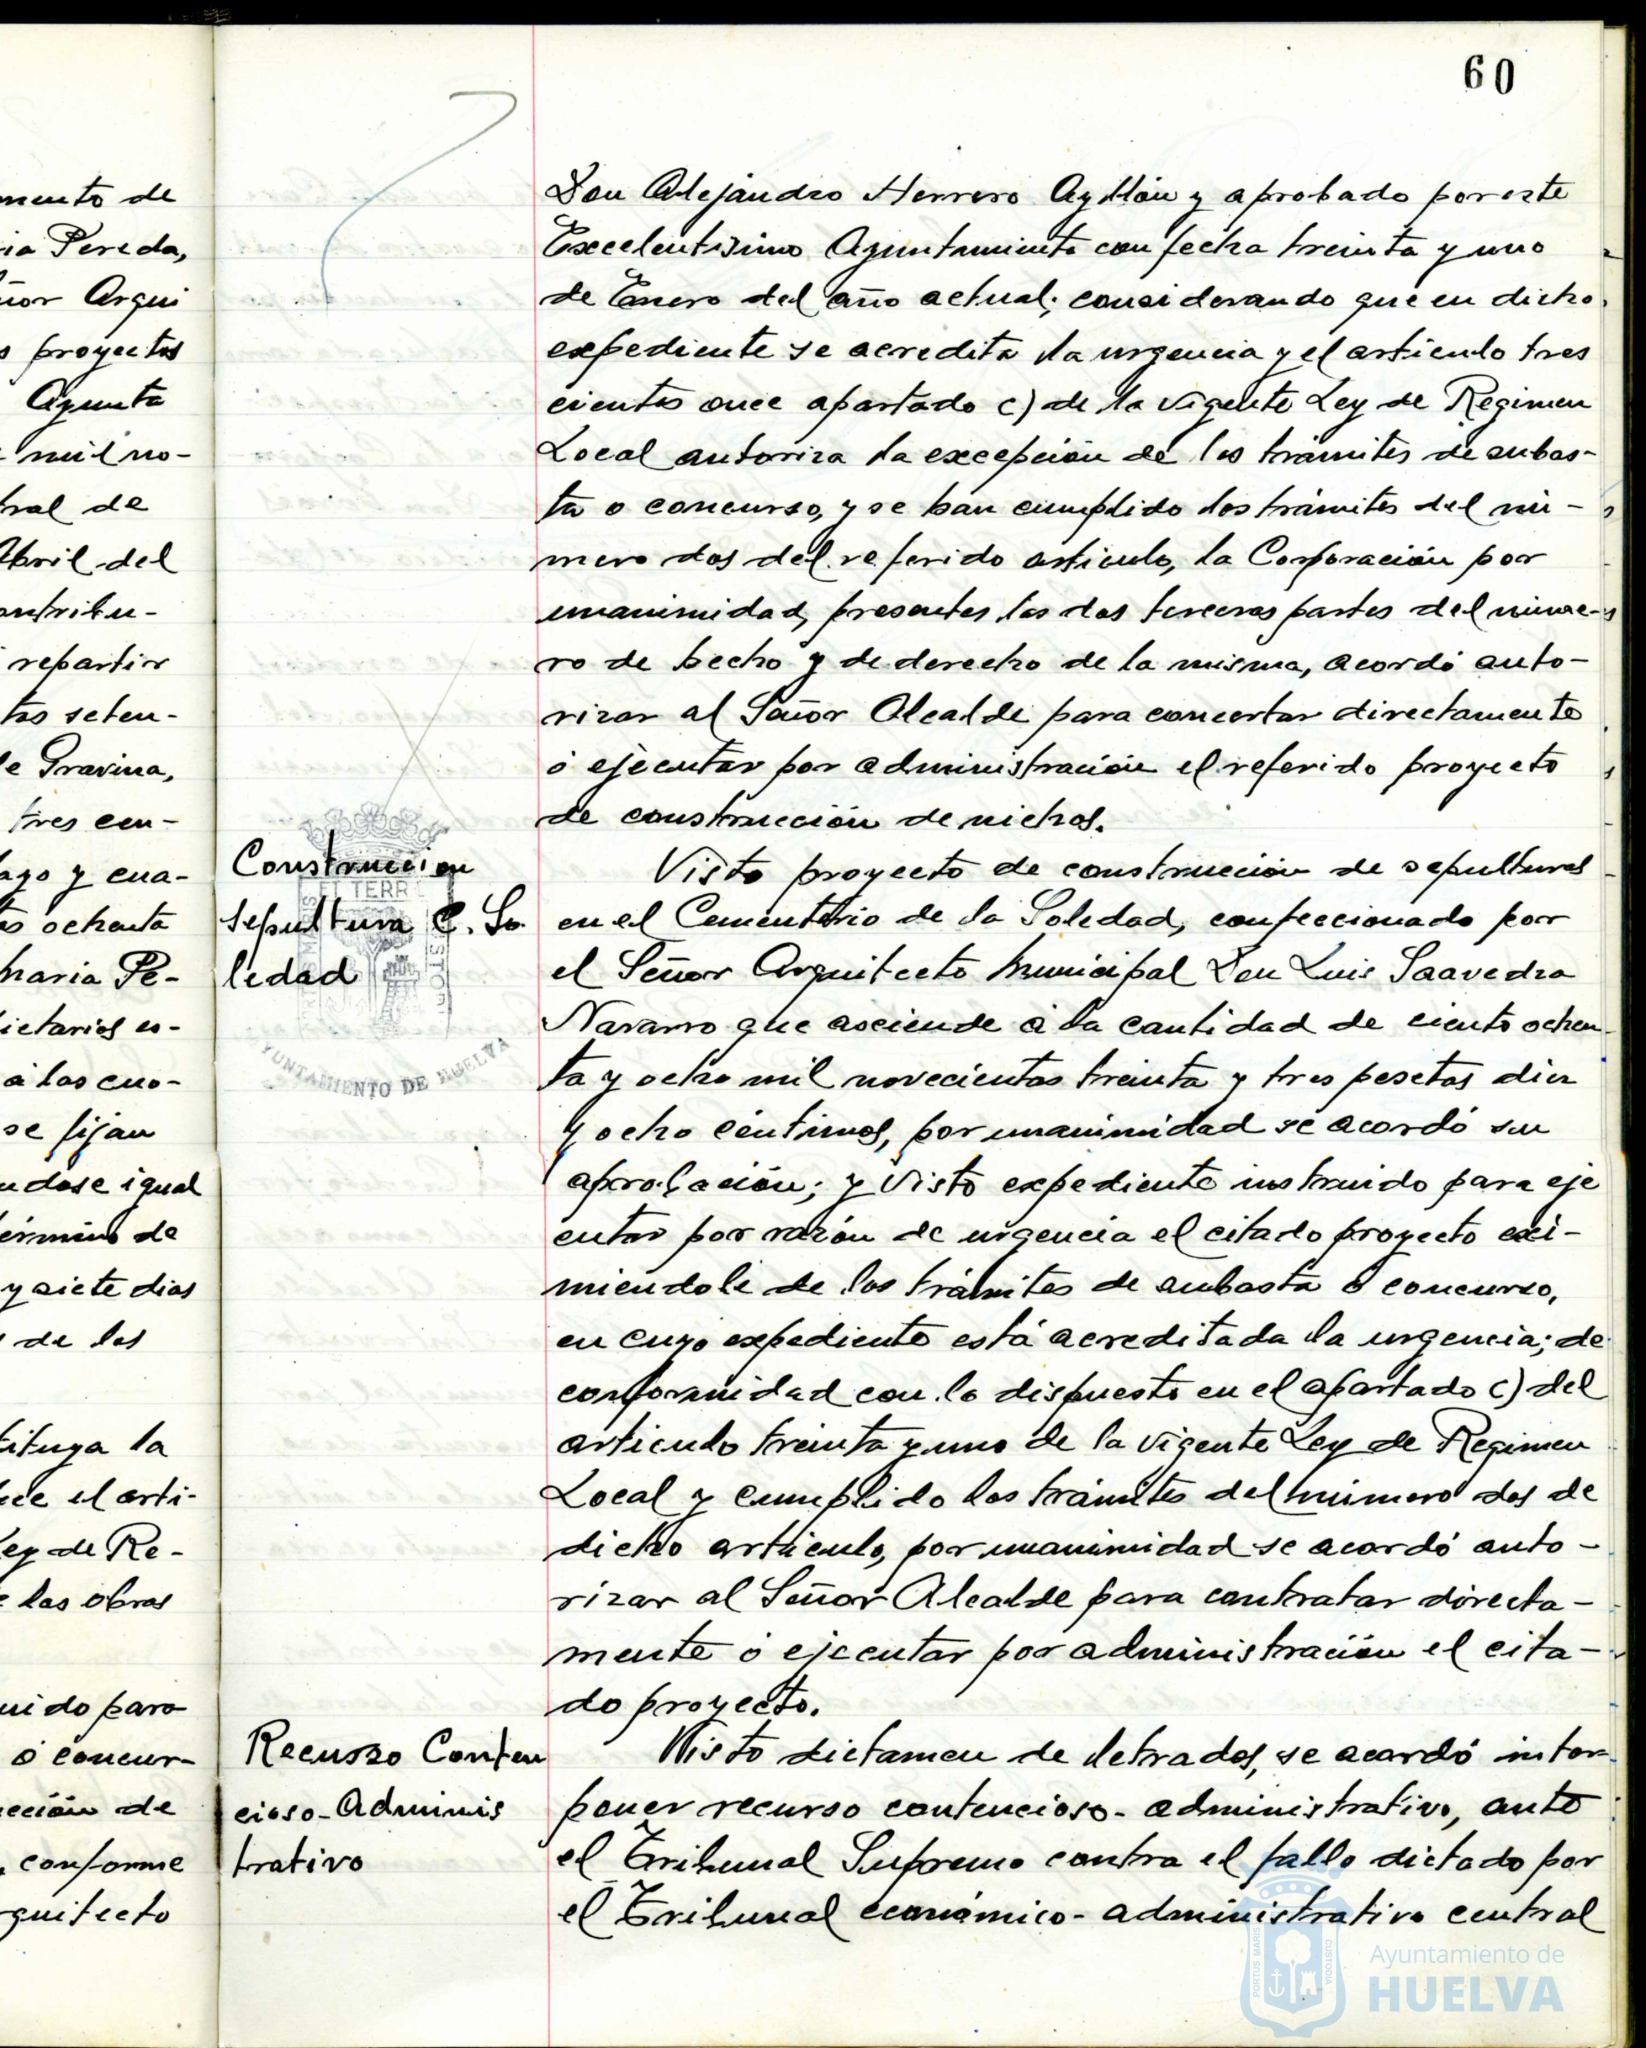 60
mento de
ria Pereda,
ñor Arqui
s proyectos
Ayunta
mil no-
tral de
Abril del
ontribu-
repartir
tos seten-
le Gravina,
tres cen-
ago y cua-
os ochenta
haria Pe-
ietarios es-
a las cuo-
se fijan
ndose igual
érmino de
y siete dias
de los
tituya la
ece el arti-
Ley de Re-
e las obras
uido para
ó concur-
ección de
conforme
rquitecto
Don Alejandro Herrero Ayllón y aprobado por este
Excelentisimo Ayuntamiento con fecha treinta y uno
de Enero del año actual; considerando que en dicho
expediente se acredita la urgencia y el articulo tres
cientos once apartado c) de la vigente Ley de Regimen
Local autoriza la excepción de los trámites de subas-
ta o concurso, y se han cumplido los trámites del nú-
mero dos del referido articulo, la Corporación por
unanimidad, presentes las dos terceras partes del núme-
ro de hecho y de derecho de la misma, acordó auto-
rizar al Señor Alcalde para concertar directamente
ó ejecutar por administración el referido proyecto
de construcción de nichos.
Construccion
sepultura C. So
ledad
Visto proyecto de construcción de sepulturas
en el Cementerio de la Soledad, confeccionado por
el Señor Arquitecto Municipal Don Luis Saavedra
Navarro que asciende á la cantidad de ciento ochen-
ta y ocho mil novecientas treinta y tres pesetas diez
y ocho céntimos, por unanimidad se acordó su
aprobación; y visto expediente instruido para eje
cutar por razón de urgencia el citado proyecto exi-
miendole de los trámites de subasta ó concurso,
en cuyo expediente está acreditada la urgencia; de
conformidad con lo dispuesto en el apartado c) del
articulo treinta y uno de la vigente Ley de Regimen
Local y cumplido los trámites del número dos de
dicho articulo, por unanimidad se acordó auto-
rizar al Señor Alcalde para contratar directa-
mente ó ejecutar por administración el cita-
do proyecto.
Recurso Conten
cioso-Adminis
trativo
Visto dictamen de letrados, se acordó inter-
poner recurso contencioso-administrativo, ante
el Tribunal Supremo contra el fallo dictado por
el Tribunal económico-administrativo central
AYUNTAMIENTO DE HUELVA
Ayuntamiento de
HUELVA
PORTUS MARIS
CUSTODIA